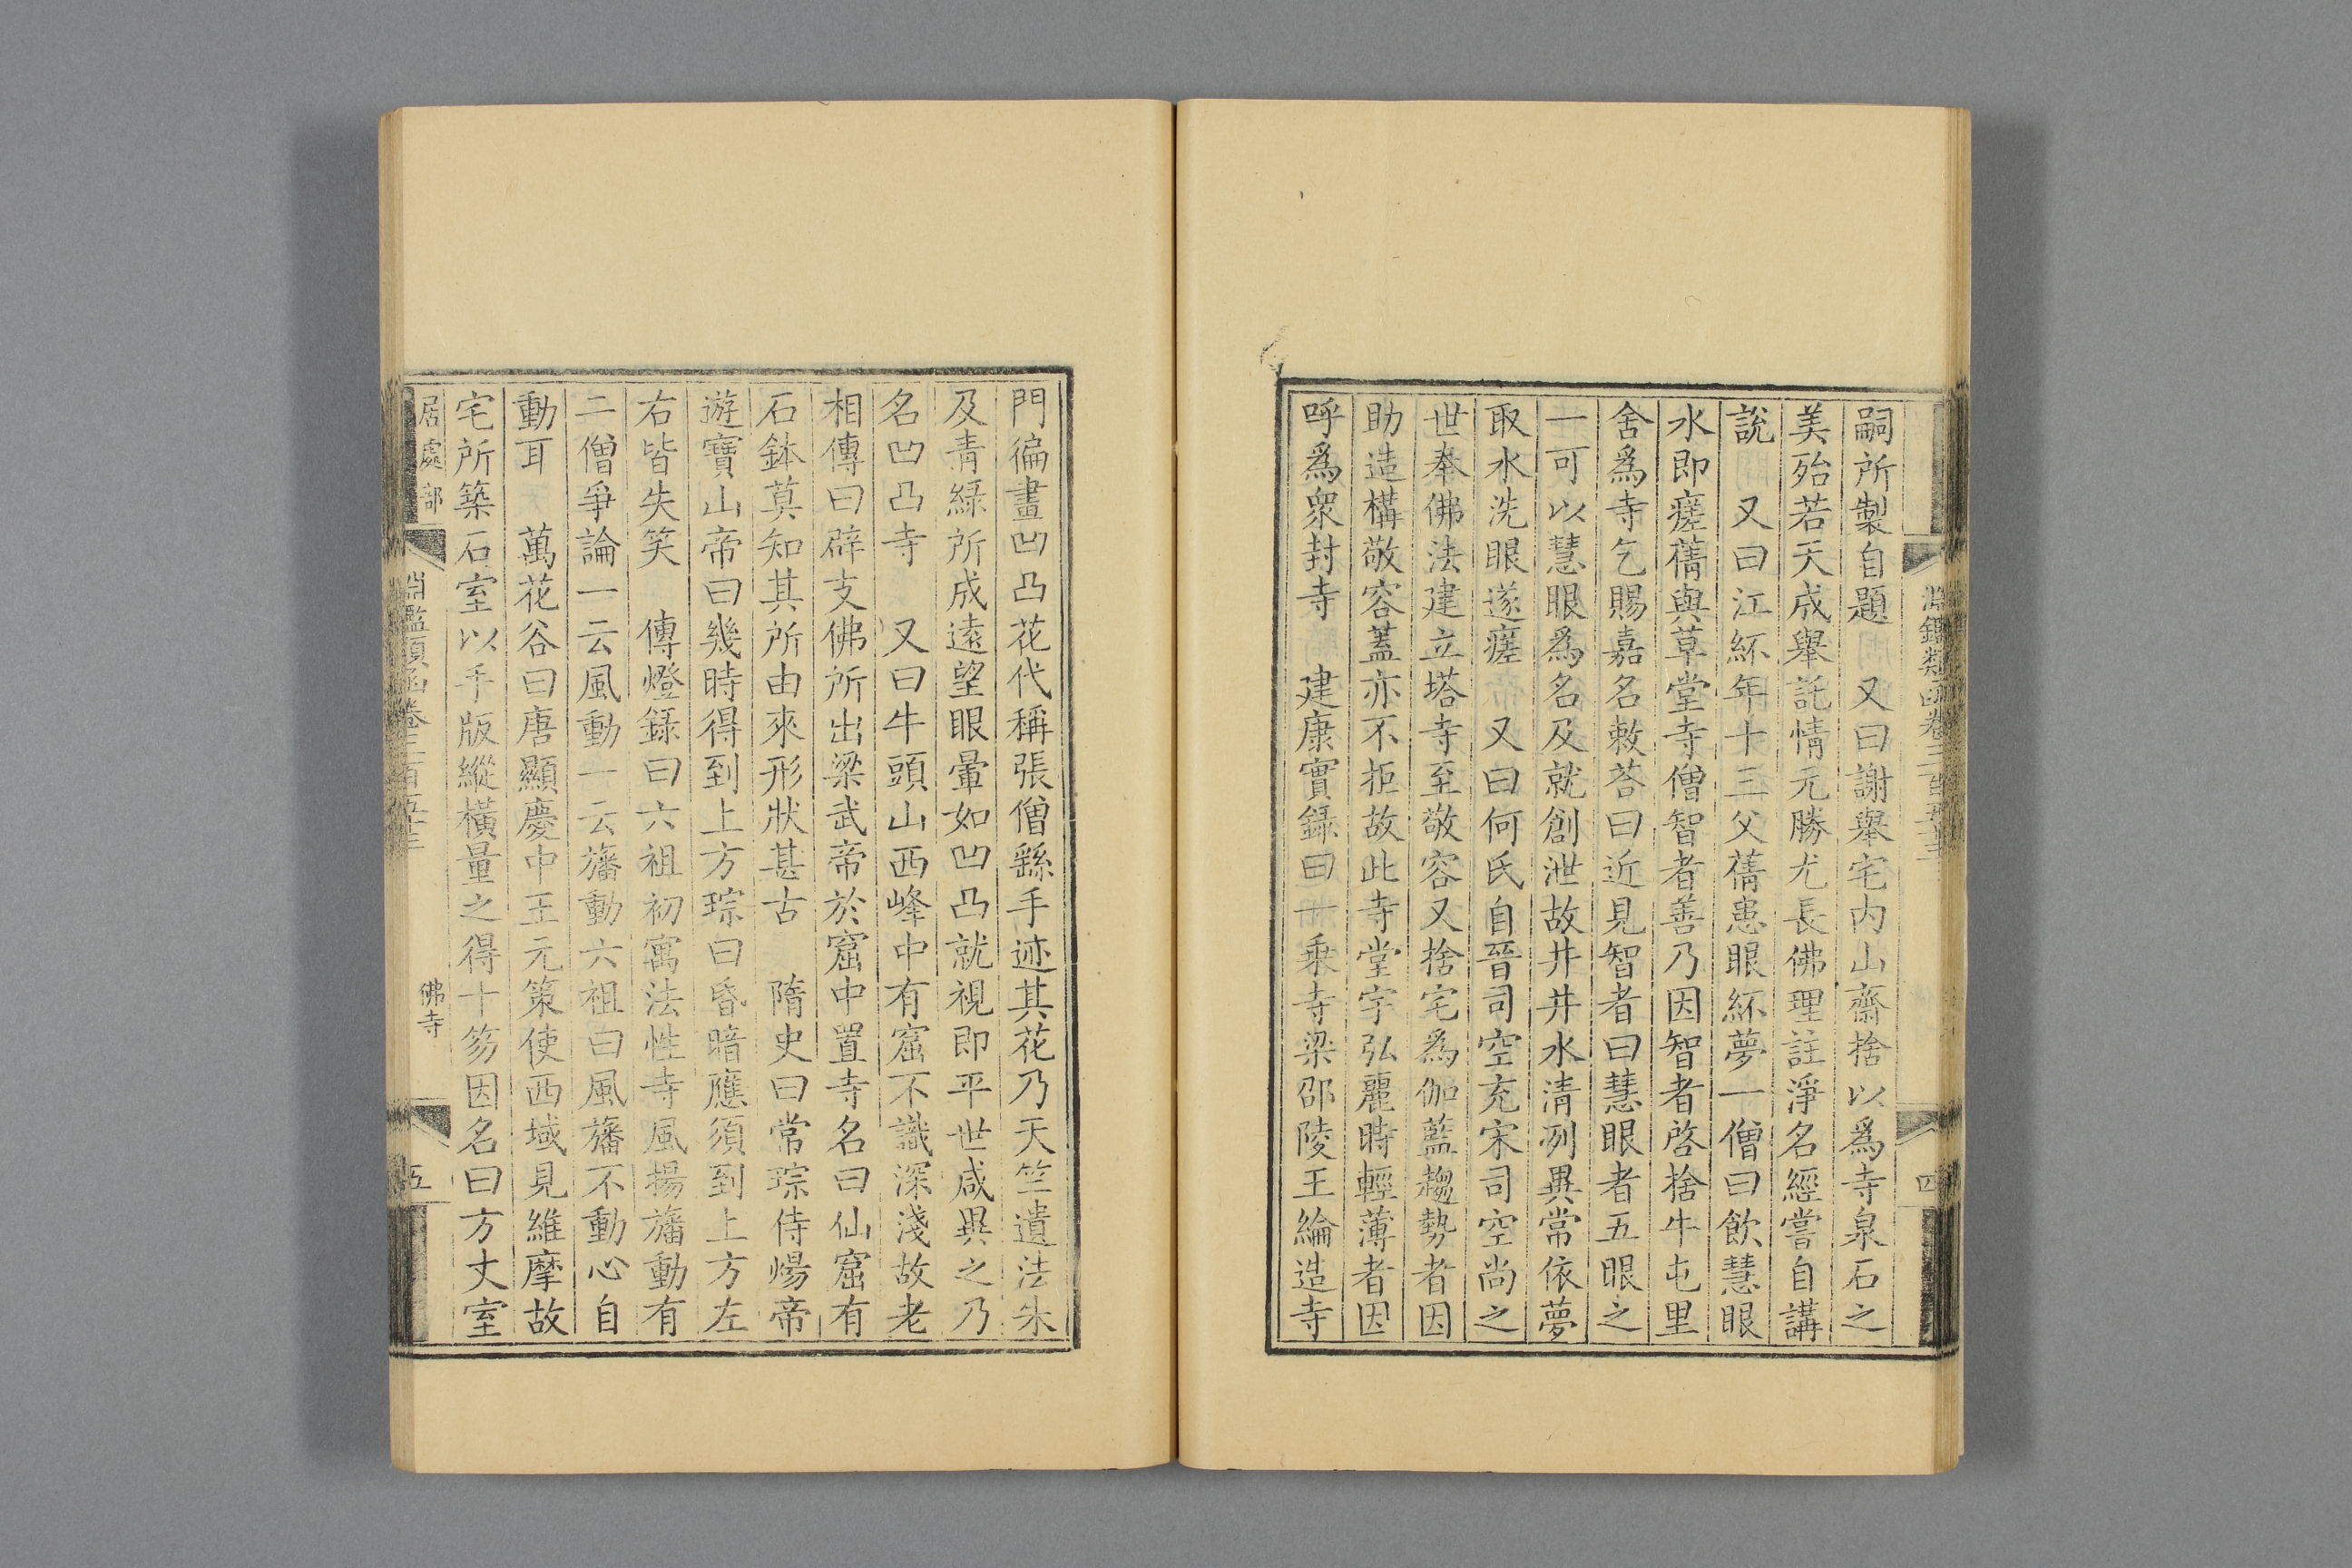 嗣所製自題　又曰謝舉宅内山齋捨以爲寺泉石之
美殆若天成舉託情元勝尤長佛理註淨名經嘗自講
說　又曰江紑年十三父蒨患眼紑夢一僧曰飲慧眼
水即瘥蒨與草堂寺僧智者善乃因智者啓捨牛屯里
舍爲寺乞賜嘉名敕荅曰近見智者曰慧眼者五眼之
一可以慧眼爲名及就創泄故井井水清冽異常依夢
取水洗眼遂瘥　又曰何氏自晉司空充宋司空尚之
世奉佛法建立塔寺至敬容又捨宅爲伽藍趨勢者因
助造構敬容葢亦不拒故此寺堂宇弘麗時輕薄者因
呼爲衆封寺　建康實錄曰一乗寺梁邵陵王綸造寺
淵鑑類函卷三百五十三
四
門徧畫凹凸花代稱張僧繇手迹其花乃天竺遺法朱
及青綠所成遠望眼暈如凹凸就視即平世咸異之乃
名凹凸寺　又曰牛頭山西峰中有窟不識深淺故老
相傳曰辟支佛所出梁武帝於窟中置寺名曰仙窟有
石鉢莫知其所由來形狀甚古　隋史曰常琮侍煬帝
遊寶山帝曰幾時得到上方琮曰昏暗應須到上方左
右皆失笑　傳燈錄曰六祖初寓法性寺風揚旛動有
二僧爭論一云風動一云旛動六祖曰風旛不動心自
動耳　萬花谷曰唐顯慶中王元策使西域見維摩故
宅所築石室以手版縱橫量之得十笏因名曰方丈室
居處部
淵鑑類函卷三百五十三
佛寺
五